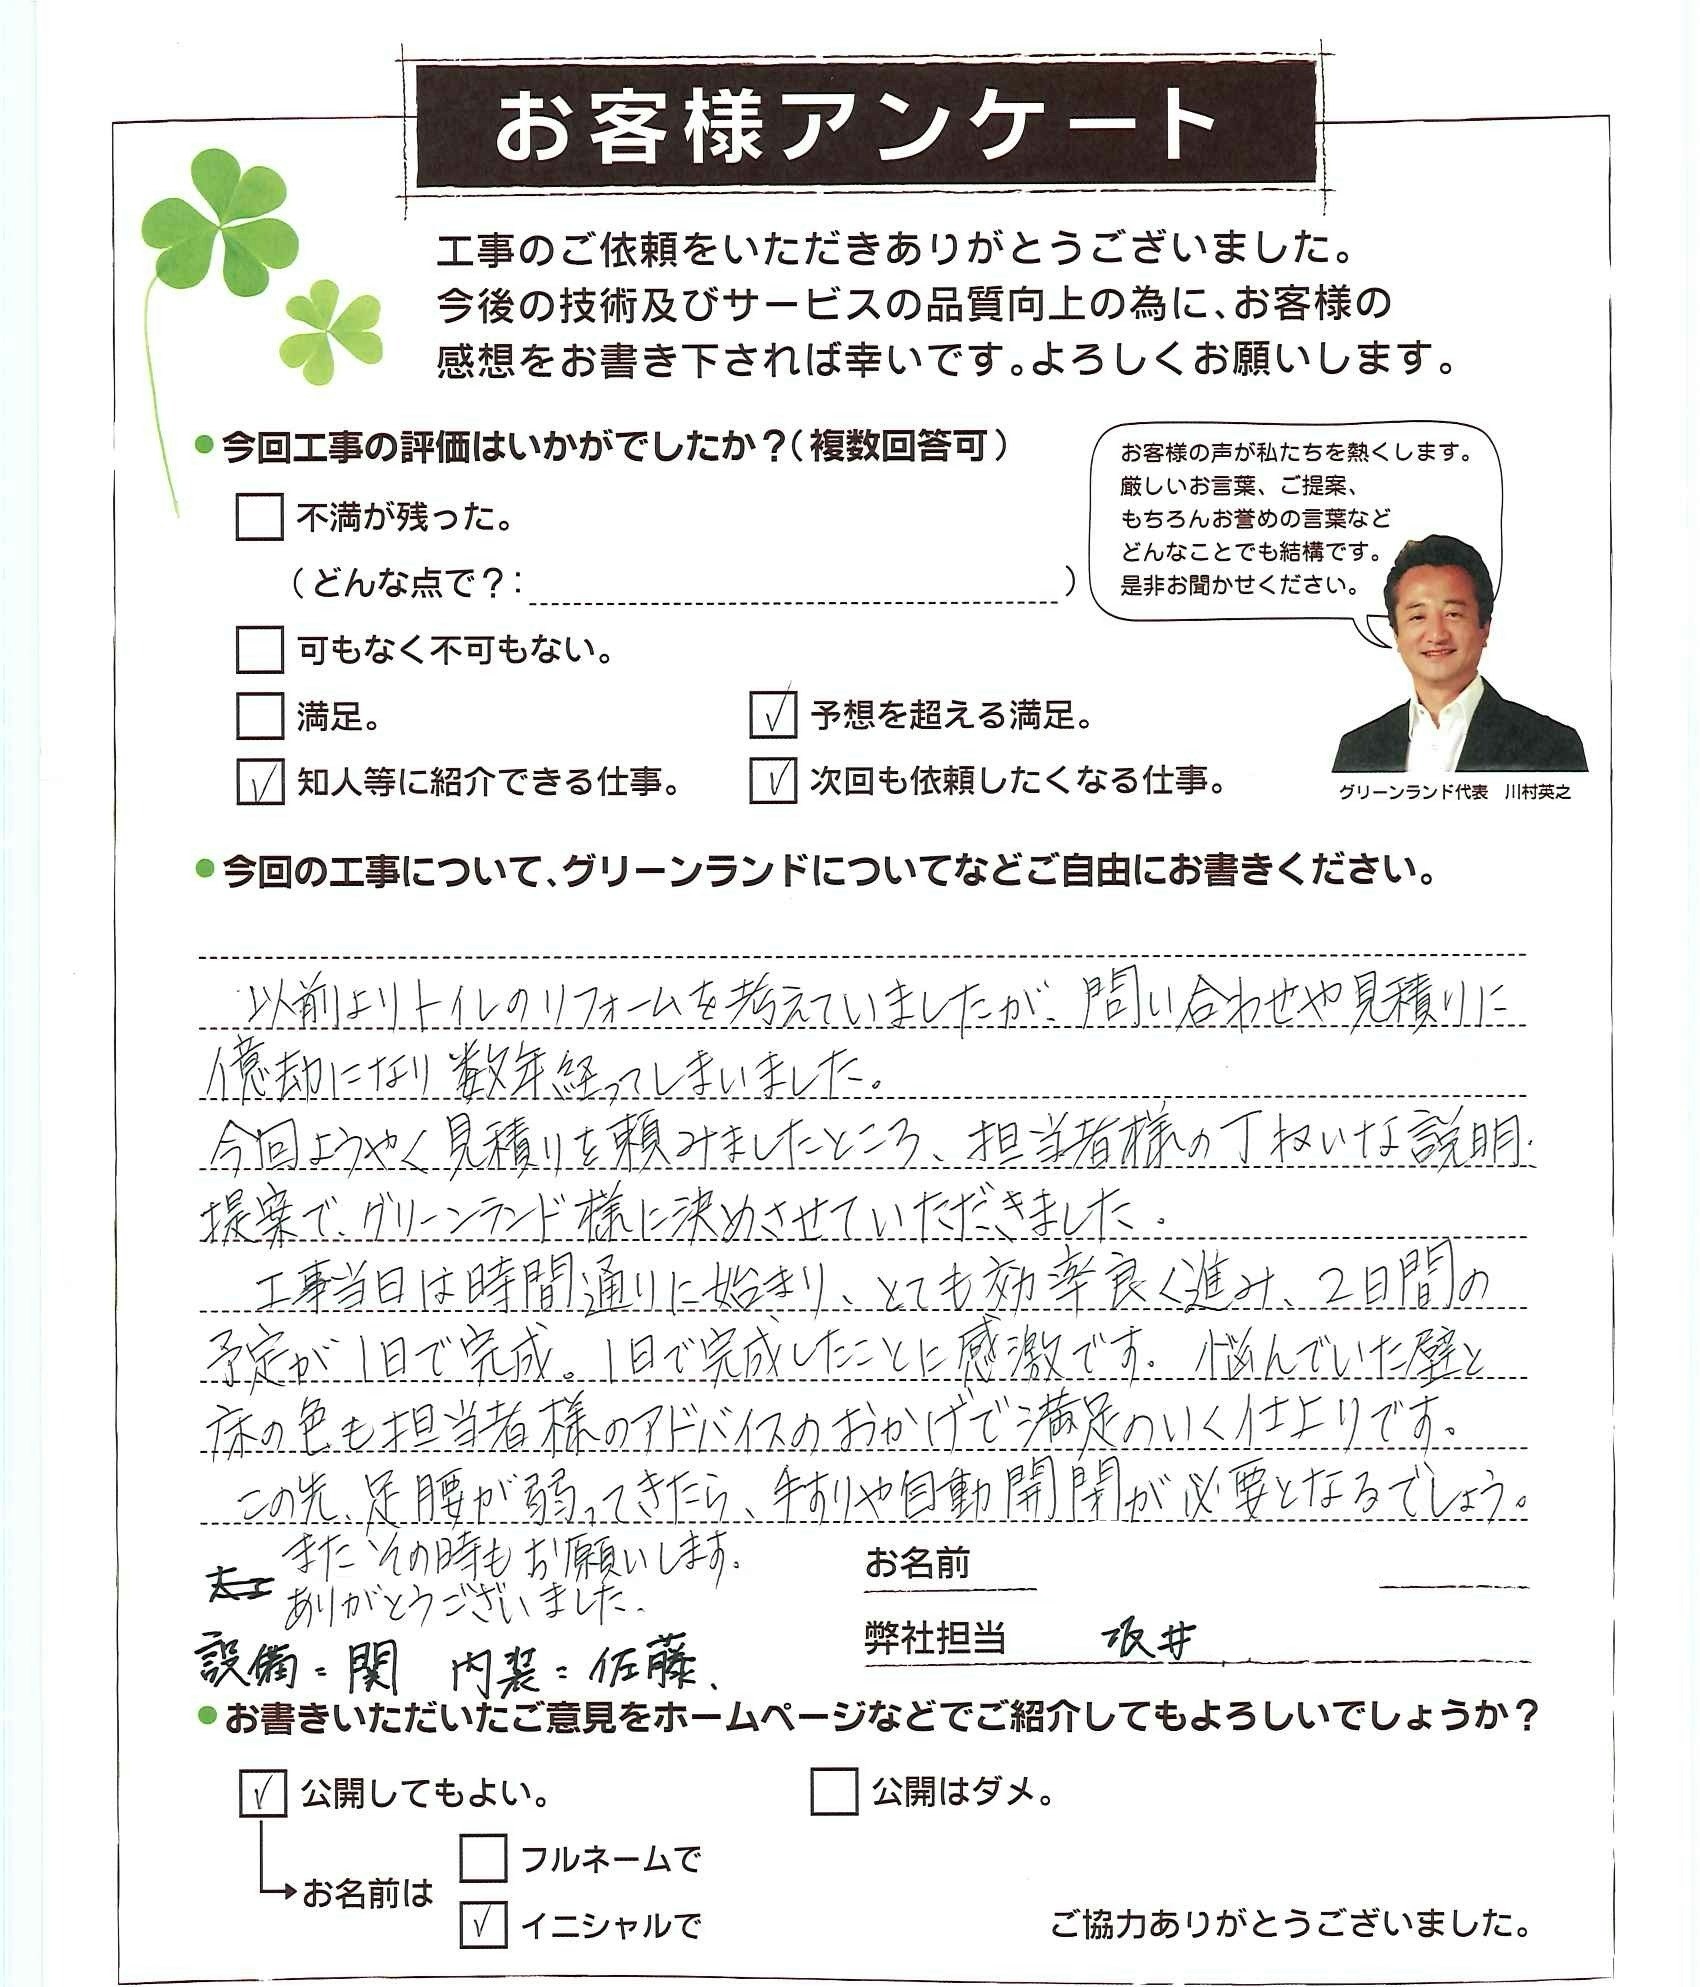 お客様アンケート
工事のご依頼をいただきありがとうございました。
今後の技術及びサービスの品質向上の為に、お客様の
感想をお書き下されば幸いです。よろしくお願いします。
●今回工事の評価はいかがでしたか？（複数回答可）
不満が残った。
（どんな点で？： ）
可もなく不可もない。
満足。
✓ 予想を超える満足。
✓ 知人等に紹介できる仕事。
✓ 次回も依頼したくなる仕事。
お客様の声が私たちを熱くします。
厳しいお言葉、ご提案、
もちろんお誉めの言葉など
どんなことでも結構です。
是非お聞かせください。
グリーンランド代表 川村英之
●今回の工事について、グリーンランドについてなどご自由にお書きください。
以前よりトイレのリフォームを考えていましたが、問い合わせや見積りに
億劫になり数年経ってしまいました。
今回ようやく見積りを頼みましたところ、担当者様の丁ねいな説明・
提案で、グリーンランド様に決めさせていただきました。
工事当日は時間通りに始まり、とても効率良く進み、2日間の
予定が1日で完成。1日で完成したことに感激です。悩んでいた壁と
床の色も担当者様のアドバイスのおかげで満足のいく仕上りです。
この先、足腰が弱ってきたら、手すりや自動開閉が必要となるでしょう。
またその時もお願いします。
ありがとうございました。
お名前
弊社担当 坂井
設備＝関 内装＝佐藤
●お書きいただいたご意見をホームページなどでご紹介してもよろしいでしょうか？
✓ 公開してもよい。
公開はダメ。
お名前は
フルネームで
✓ イニシャルで
ご協力ありがとうございました。